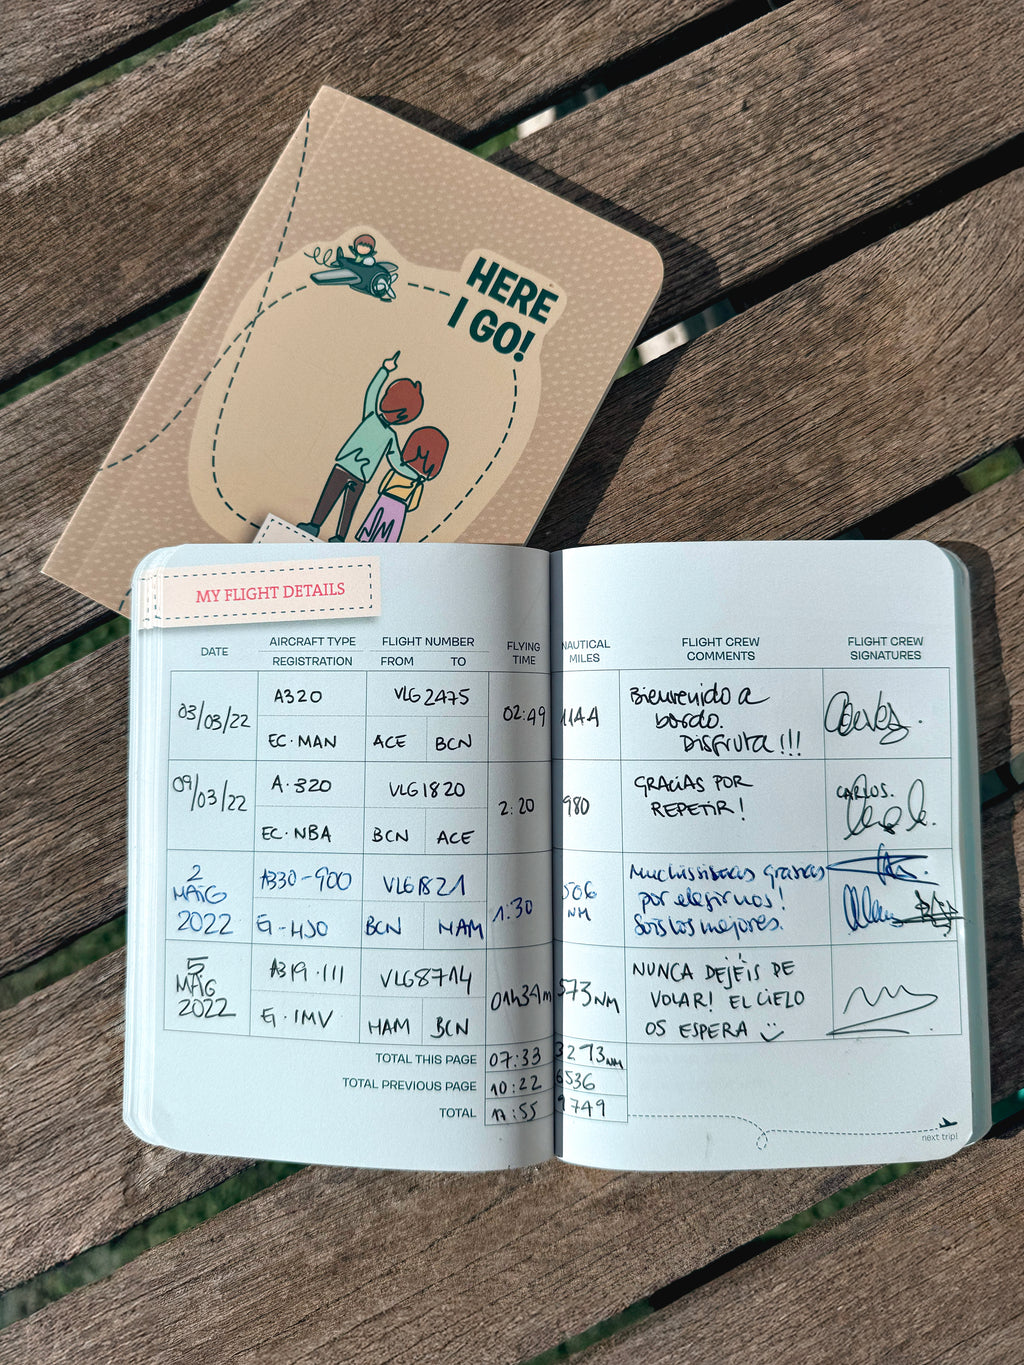 HERE
I GO!
MY FLIGHT DETAILS
DATE
AIRCRAFT TYPE
REGISTRATION
FLIGHT NUMBER
FROM TO
FLYING
TIME
NAUTICAL
MILES
FLIGHT CREW
COMMENTS
FLIGHT CREW
SIGNATURES
03/03/22
A320
EC-MAN
VLG 2475
ACE BCN
02:49
1144
Bienvenido a
bordo.
Disfruta!!!
09/03/22
A-320
EC-NBA
VLG 1820
BCN ACE
2:20
980
GRACIAS POR
REPETIR!
CARLOS.
2
MAIG
2022
A330-900
VLG1821
BCN HAM
1:30
506
NM
Muchísimas gracias
por elegirnos!
Sois los mejores.
5
MAIG
2022
A319-111
VLG8714
HAM BCN
01h34m
573NM
NUNCA DEJÉIS DE
VOLAR! EL CIELO
OS ESPERA
TOTAL THIS PAGE 07:33 3213NM
TOTAL PREVIOUS PAGE 10:22 6536
TOTAL 17:55 9749
next trip!